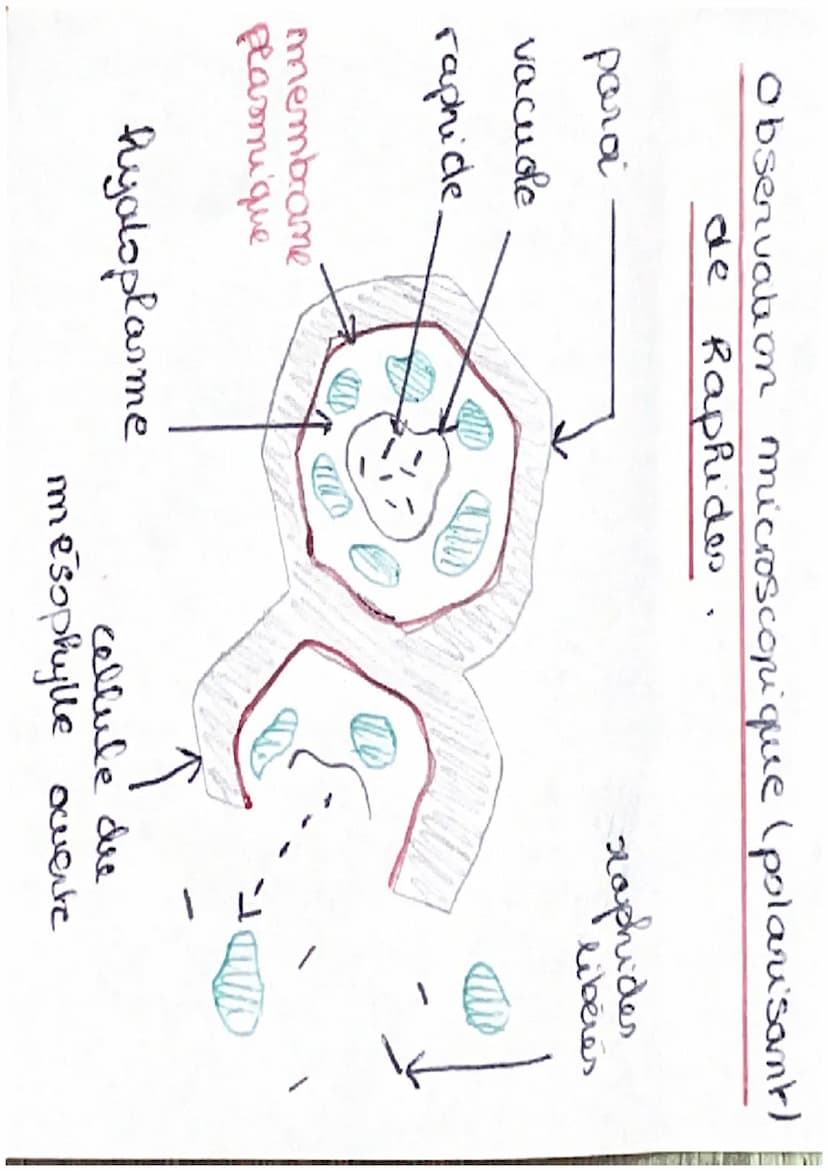 Observation microscopique (polarisant)
de Raphides.
paroi
vacuole
raphide
membrane
plasmique
hyaloplasme
raphides
libérés
cellule du
mésophylle ouverte